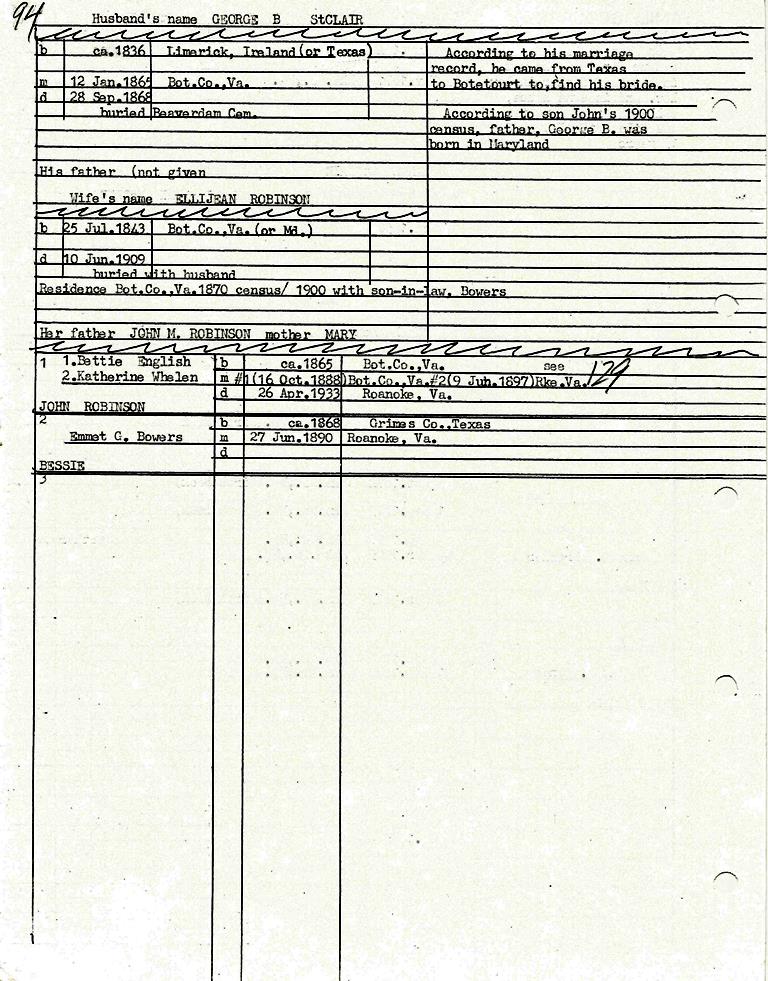 94
Husband's name GEORGE B StCLAIR
b ca.1836 Limerick, Ireland(or Texas)
m 12 Jan.1865 Bot.Co.,Va.
d 28 Sep.1868
buried Beaverdam Cem.
According to his marriage
record, he came from Texas
to Botetourt to,find his bride.
According to son John's 1900
census, father, George B. was
born in Maryland
His father (not given
Wife's name ELLIJEAN ROBINSON
b 25 Jul.1843 Bot.Co.,Va.(or Md.)
d 10 Jun.1909
buried with husband
Residence Bot.Co.,Va.1870 census/ 1900 with son-in-law, Bowers
Her father JOHN M. ROBINSON mother MARY
1 1.Bettie English b ca.1865 Bot.Co.,Va. see 129
2.Katherine Whelen m #1(16 Oct.1888)Bot.Co.,Va.#2(9 Jun.1897)Rke.Va.
d 26 Apr.1933 Roanoke, Va.
JOHN ROBINSON
2 b ca.1868 Grimes Co.,Texas
Emmet G. Bowers m 27 Jun.1890 Roanoke, Va.
d
BESSIE
3